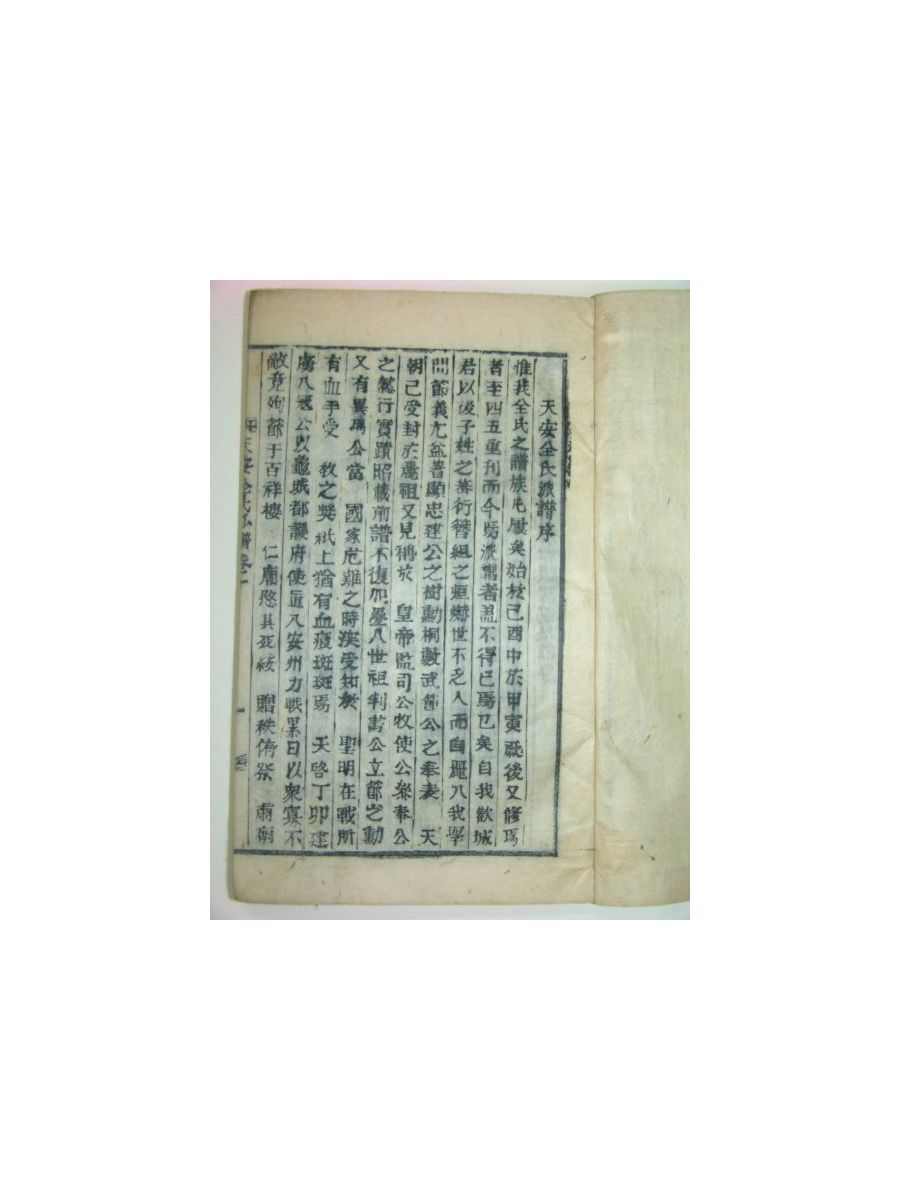 天安全氏派譜序
惟我全氏之譜族屯屢矣始於己酉中於甲寅厥後又修焉
者至四五重刊而今焉派譜者盖不得已焉已矣自我歡城
君以後子姓之蕃衍簪組之烜爀世不乏人而自麗入我學
問節義尤益著顯忠建公之樹勳桐藪武節公之奉表 天
朝已受封於麗祖又見稱於 皇帝監司公牧使公參奉公
之懿行實蹟昭載前譜不復加疊八世祖判書公立節之勳
又有異焉公當 國家危難之時深受知於 聖明在戰所
有血手受 教之奬紙上猶有血痕斑斑焉 天啓丁卯建
虜入寇公以龜城都護府使直入安州力戰累日以衆寡不
敵竟殉節于百祥樓 仁廟愍其死綏 贈秩侑祭 肅廟
天安全氏派譜卷之一